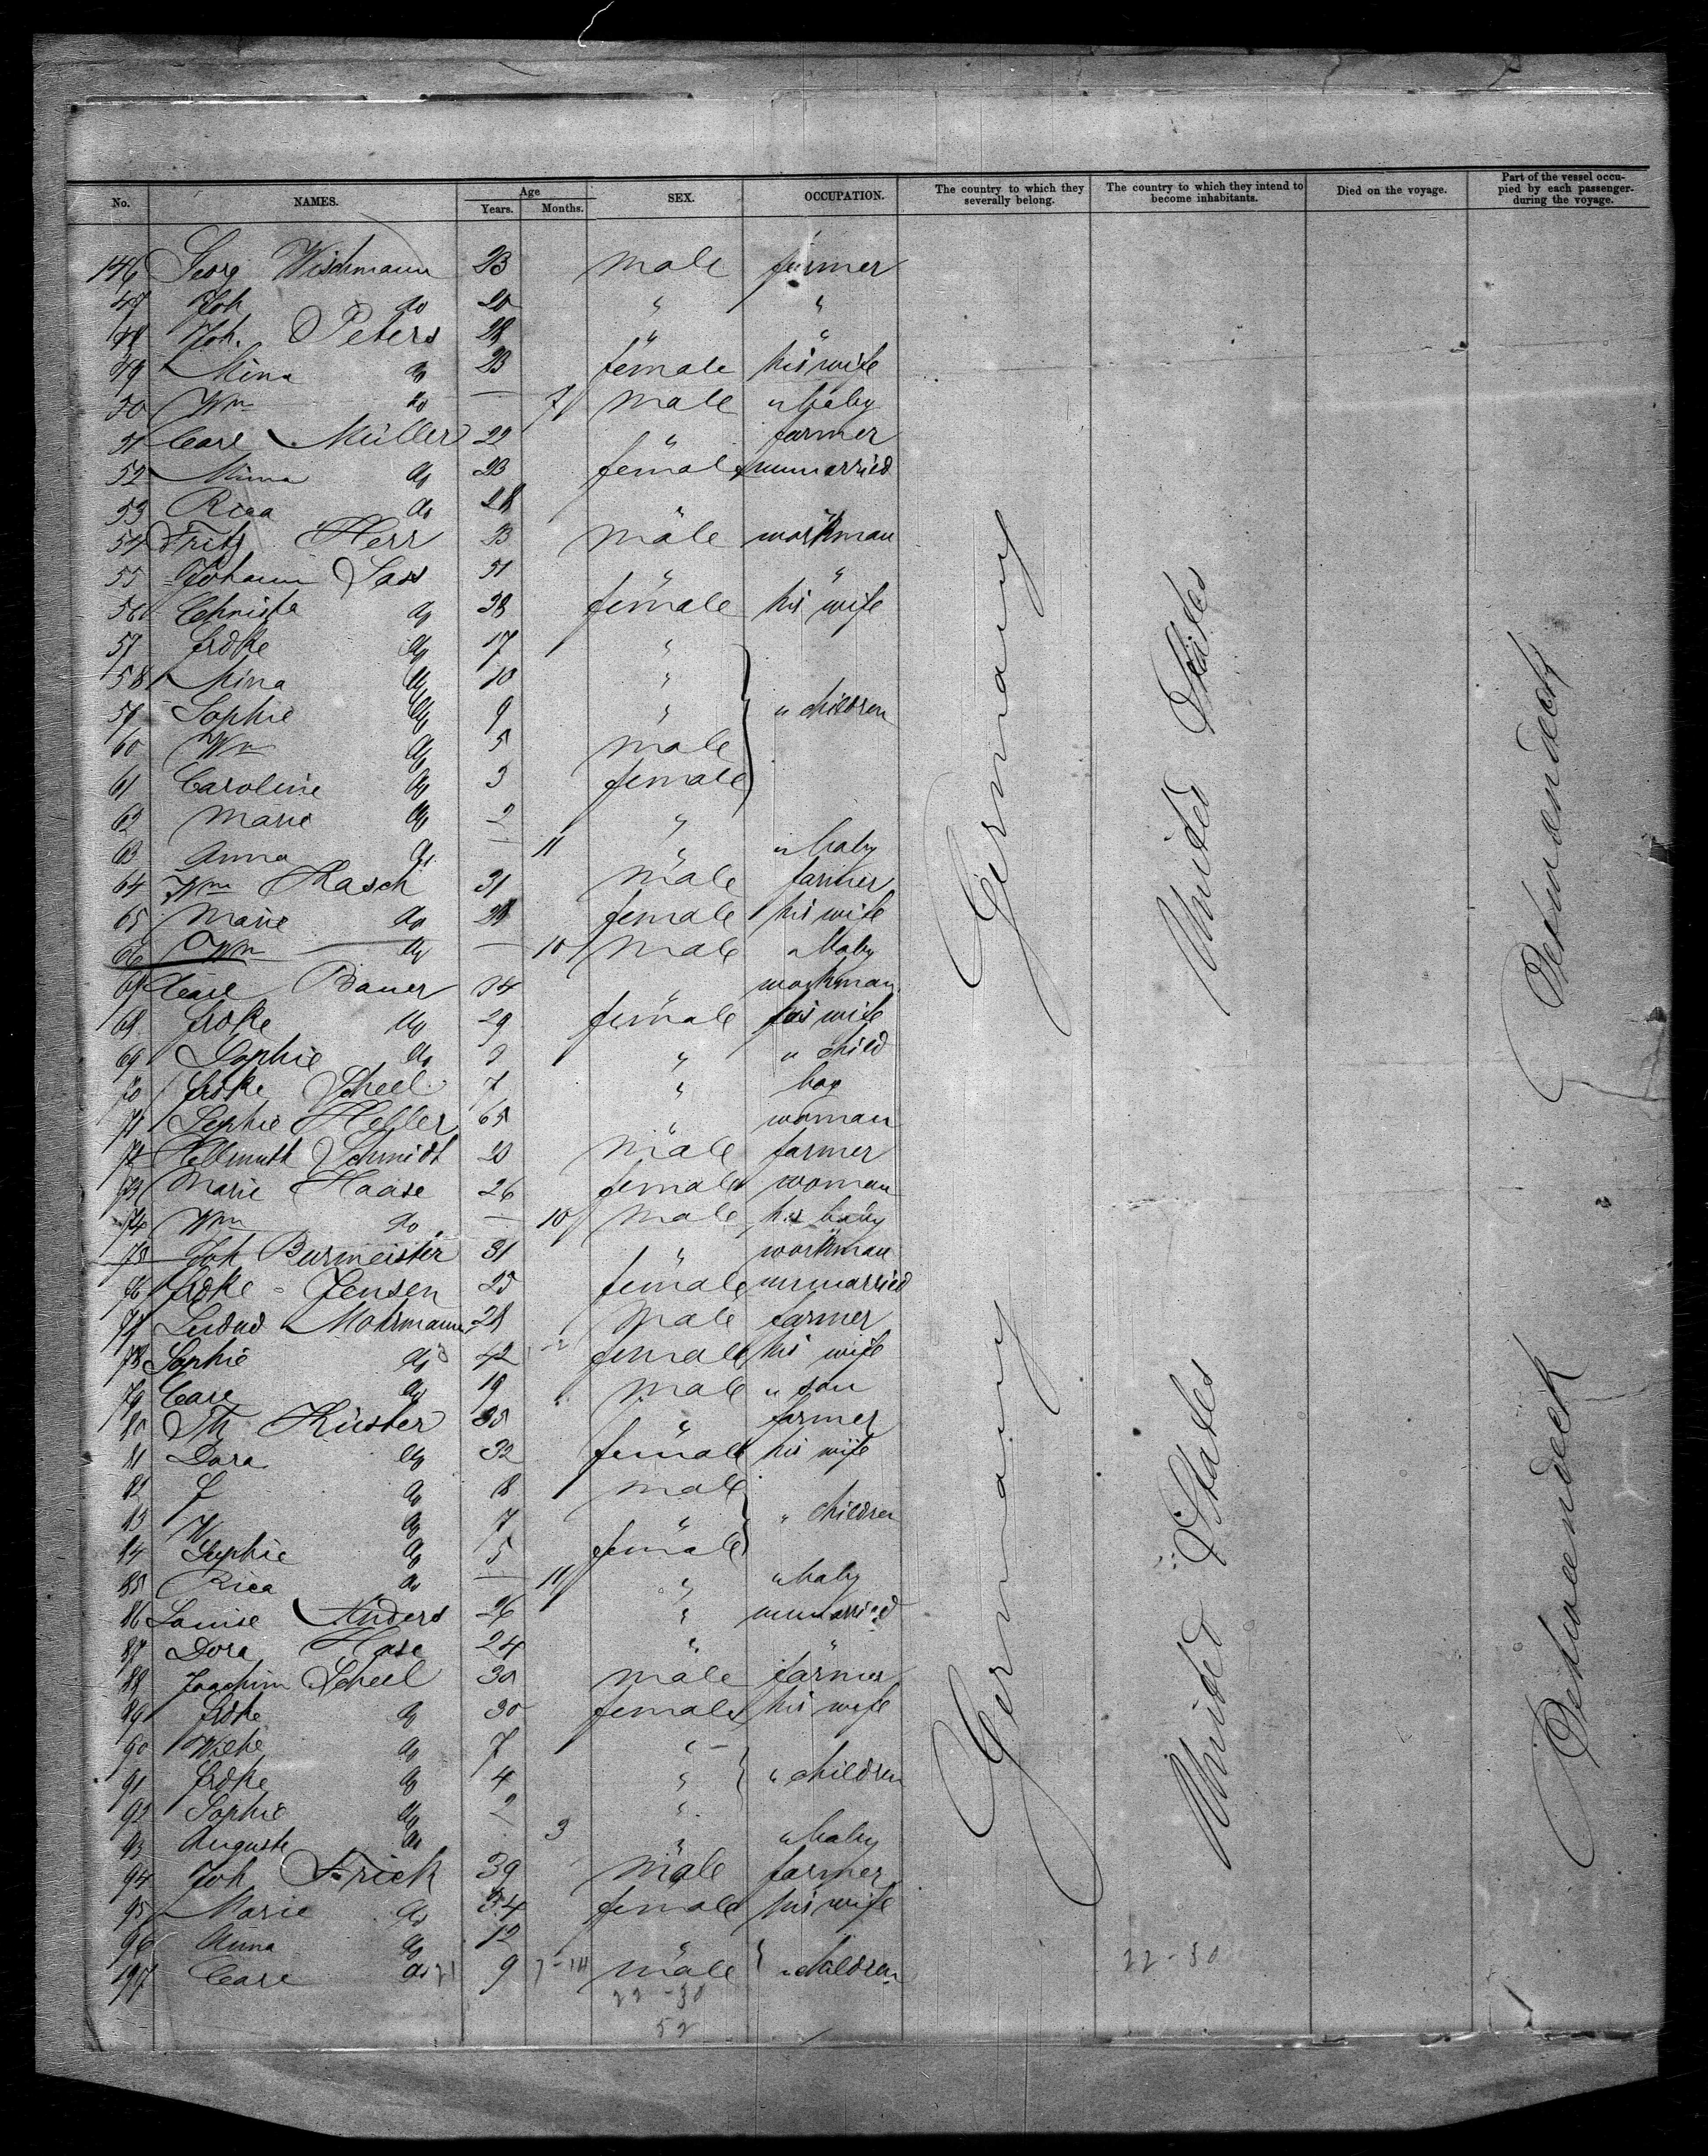 No. NAMES. Age Years. Months. SEX. OCCUPATION. The country to which they severally belong. The country to which they intend to become inhabitants. Died on the voyage. Part of the vessel occu-pied by each passenger-during the voyage.
146 Georg Wischmann 23 male farmer
47 Joh do 20 " "
48 Joh. Peters 28 " "
49 Mina do 23 female his wife
50 Wm do — 7 male " baby
51 Carl Müller 22 " farmer
52 Minna do 23 female unmarried
53 Rica do 28
54 Fritz Herr 23 male workman
55 Johann Sass 51 " "
56 Christa do 38 female his wife
57 Frdke do 17 "
58 Mina do 10 "
59 Sophie do 9 " " children
60 Wm do 5 male
61 Caroline do 3 female
62 Marie do 2 "
63 Anna do — 11 " " baby
64 Wm Rasch 31 male farmer
65 Marie do 28 female his wife
66 Wm do — 10 male " baby
67 Carl Bauer 34 " workman
68 Frdke do 29 female his wife
69 Sophie do " " child
70 Frdke Scheel 7 " boy
71 Sophie Heller 65 " woman
72 Hellmuth Schmidt 20 male farmer
73 Marie Haase 26 female woman
74 Wm do — 10 male his baby
75 Joh Burmeister 31 " workman
76 Frdke - Jensen 25 female unmarried
77 Ludwd Mohrmann 28 male farmer
78 Sophie do 42 female his wife
79 Carl do 19 male " son
80 Th Küster 35 " farmer
81 Dora do 32 female his wife
82 F do 8 male
83 W do 7 " " children
84 Sophie do 5 female
85 Rica do — 11 " " baby
86 Louise Anders 26 " unmarried
87 Dora Hase 24 " "
88 Joachim Scheel 30 male farmer
89 Frdke do 30 female his wife
90 Wilhe do 7 "
91 Frdke do 4 " " children
92 Sophie do 2 "
93 Auguste do 3 " " baby
94 Joh Frick 39 male farmer
95 Marie do 34 female his wife
96 Anna do 12 "
197 Carl do 9 male " children
22-30
52
22-30
Germany
United States
Betweendeck
Germany
United States
Betweendeck